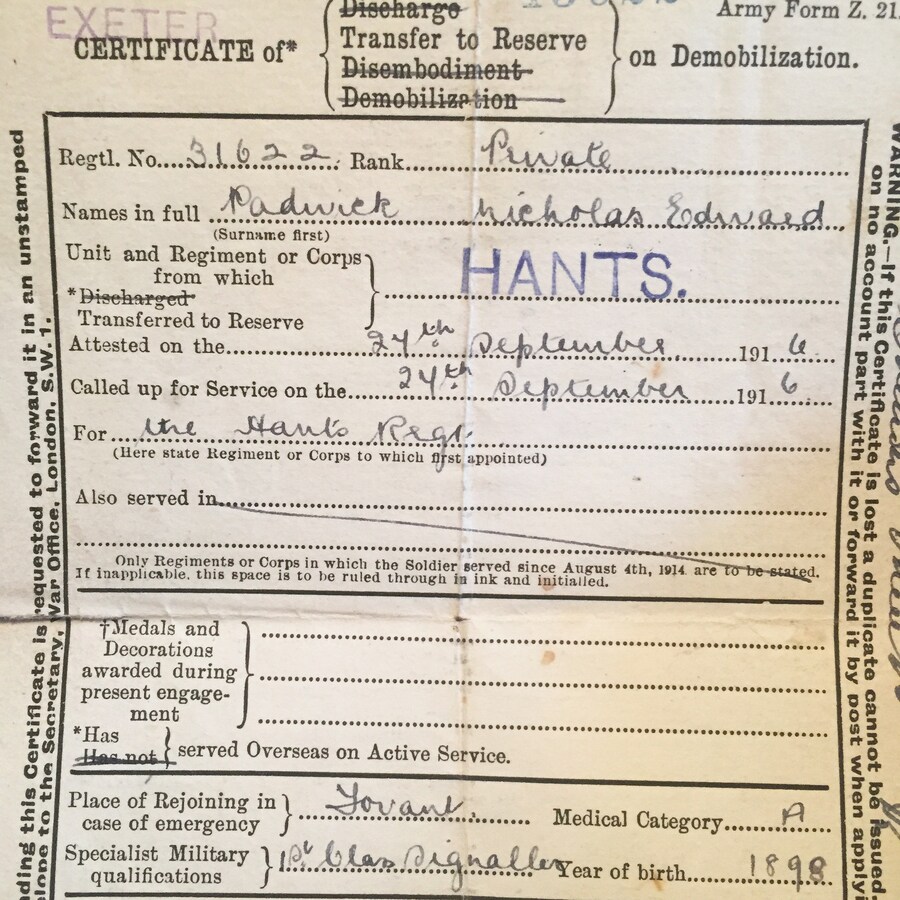 EXETER
Army Form Z. 21.
CERTIFICATE of*
Discharge
Transfer to Reserve
Disembodiment
Demobilization
on Demobilization.
Regtl. No. 31622. Rank Private
Names in full Padwick Nicholas Edward
(Surname first)
Unit and Regiment or Corps
from which
*Discharged
Transferred to Reserve
HANTS.
Attested on the 24th September 1916.
Called up for Service on the 24th September 1916.
For the Hants Regt.
(Here state Regiment or Corps to which first appointed)
Also served in
Only Regiments or Corps in which the Soldier served since August 4th, 1914. are to be stated.
If inapplicable, this space is to be ruled through in ink and initialled.
†Medals and
Decorations
awarded during
present engage-
ment
*Has
Has not
served Overseas on Active Service.
Place of Rejoining in
case of emergency
Fovant. Medical Category A
Specialist Military
qualifications
1st Class Signaller Year of birth 1898
ding this Certificate is requested to forward it in an unstamped
elope to the Secretary, War Office, London, S.W. 1.
WARNING.—If this Certificate is lost a duplicate cannot be issued.
on no account part with it or forward it by post when applyi